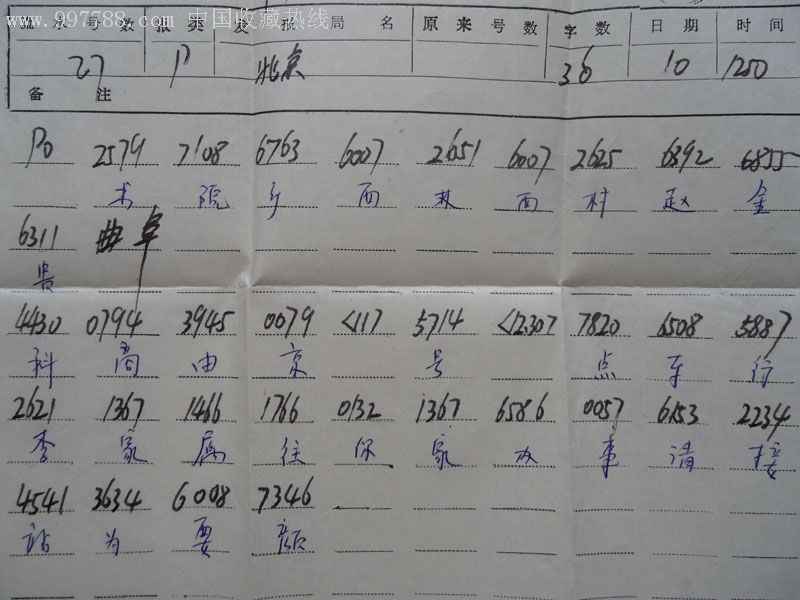 www.997788.com 中国收藏热线
流水号数 报类 发报局名 原来号数 字数 日期 时间
27 P 北京 36 10 1250
备注
P0 2579 7108 6763 6007 2651 6007 2625 6392 6855
书院乡西林西村赵金
6311 曲阜
贵
4430 0794 3945 0079 <117 5714 <12.307 7820 6508 5887
科商由京号点车行
2621 1367 1466 1766 0132 1367 6586 0057 6153 2234
李家属往你家办事请接
4541 3634 6008 7346
站为要颜